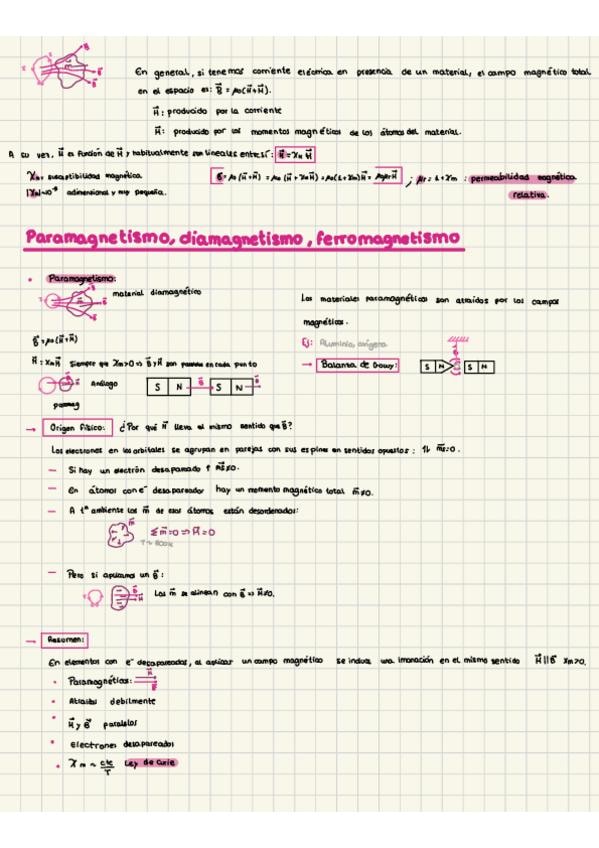 En general, si tenemos corriente eléctrica en presencia de un material, el campo magnético total
en el espacio es: B⃗ = μ₀(H⃗+M⃗).
H⃗: producido por la corriente
M⃗: producido por los momentos magnéticos de los átomos del material.
A su vez, M⃗ es función de H⃗ y habitualmente son lineales entre sí: M⃗ = χₘ H⃗
χₘ, susceptibilidad magnética.
B⃗ = μ₀(H⃗+M⃗) = μ₀(H⃗+χₘH⃗) = μ₀(1+χₘ)H⃗ = μ₀μᵣH⃗ ; μᵣ = 1+χₘ : permeabilidad magnética
adimensional y muy pequeña.
relativa.
Paramagnetismo, diamagnetismo, ferromagnetismo
• Paramagnetismo:
material diamagnético
Los materiales paramagnéticos son atraídos por los campos
magnéticos.
B⃗ = μ₀(H⃗+M⃗)
Ej: Aluminio, oxígeno
M⃗ = χₘH⃗. Siempre que χₘ>0 ⇒ B⃗ y H⃗ son en cada punto
→ Balanza de Gouy:
S N S N
Análogo
S N B⃗ S N B⃗
paramag
→ Origen físico: ¿Por qué M⃗ lleva el mismo sentido que B⃗?
Los electrones en los orbitales se agrupan en parejas con sus espines en sentidos opuestos: ↑↓ m⃗s=0.
— Si hay un electrón desapareado ↑ m⃗s≠0.
— En átomos con e⁻ desapareador hay un momento magnético total m⃗≠0.
— A tª ambiente los m⃗ de esos átomos están desordenados:
m⃗
Σm⃗=0 ⇒ M⃗=0
T ~ 300K
— Pero si aplicamos un B⃗:
Los m⃗ se alinean con B⃗ ⇒ M⃗≠0.
→ Resumen:
En elementos con e⁻ desapareados, al aplicar un campo magnético se induce una imanación en el mismo sentido M⃗ || B⃗ χₘ>0.
• Paramagnéticos: M⃗ B⃗
• Atraídos debilmente
• M⃗ y B⃗ paralelos
• Electrones desapareados
• χₘ ~ cte/T Ley de Curie